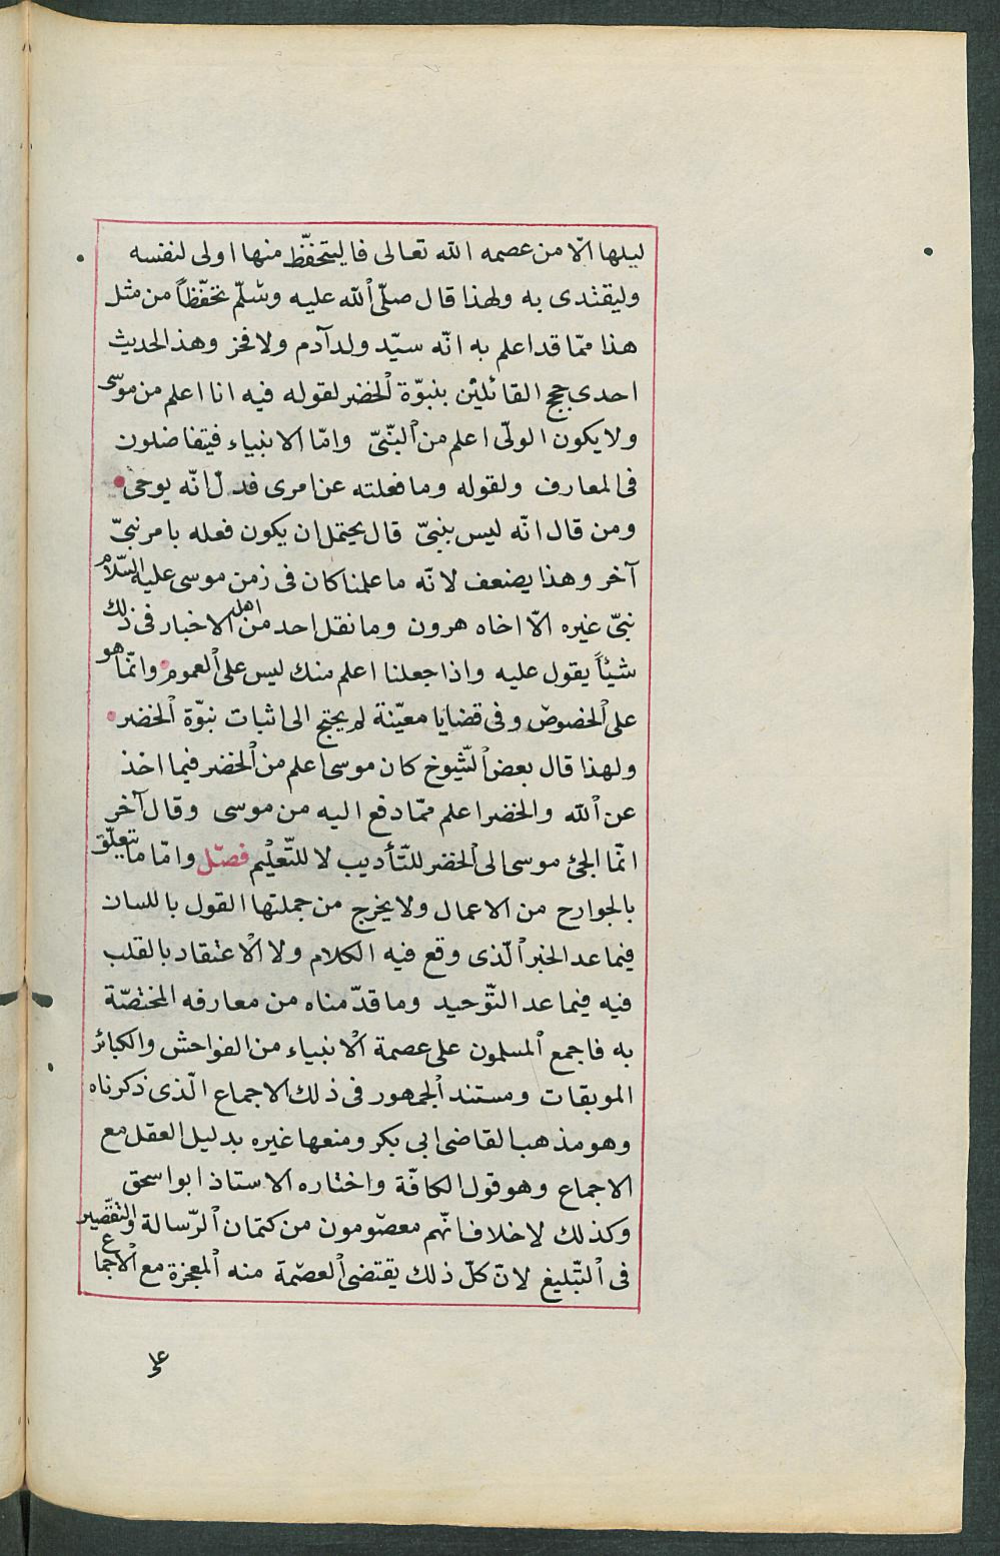 ليلها الّا من عصمه الله تعالى فاليتحفّظ منها اولى لنفسه
وليقتدى به ولهذا قال صلّى الله عليه وسّلم تحفّظاً من مثل
هذا ممّا قد اعلم به انّه سيّد ولد آدم ولا فخز وهذ الحديث
احدى حجج القائلين بنبوّة الخضر لقوله فيه انا اعلم من موسى
ولا يكون الولّى اعلم من النّبىّ وامّا الانبياء فيتفاضلون
فى المعارف ولقوله وما فعلته عن امرى فدلّ انّه يوحى
ومن قال انّه ليس بنبىّ قال يحتمل ان يكون فعله بامر نبىّ
آخر وهذا يضعف لانّه ما علمنا كان فى زمن موسى عليه السّلام
نبىّ غيره الّا اخاه هرون وما نقل احد من اهل الاخبار فى ذلك
شيئاً يقول عليه واذا جعلنا اعلم منك ليس على العموم وانّما هو
على الخصوص وفى قضايا معيّنة لم يحتج الى اثبات نبوّة الخضر
ولهذا قال بعض الشّيوخ كان موسى اعلم من الخضر فيما اخذ
عن الله والخضر اعلم ممّا دفع اليه من موسى وقال آخر
انّما الجئ موسى الى الخضر للتّأديب لا للتّعليم فصّل وامّا ما يتعلّق
بالجوارح من الاعمال ولا يخرج من جملتها القول باللسان
فيما عد الخبر الّذى وقع فيه الكلام ولا الاعتقاد بالقلب
فيه فيما عد التّوحيد وما قدّمناه من معارفه المختصّة
به فاجمع المسلمون على عصمة الانبياء من الفواحش والكبائر
الموبقات ومستند الجمهور فى ذلك الاجماع الّذى ذكرناه
وهو مذهب القاضى ابى بكر ومنعها غيره بدليل العقل مع
الاجماع وهو قول الكافّة واختاره الاستاذ ابو اسحق
وكذلك لا خلاف انّهم معصومون من كتمان الرّسالة والتقصير
فى التبّليغ لانّ كلّ ذلك يقتضى العصمة منه المعجزة مع الاجماع
على